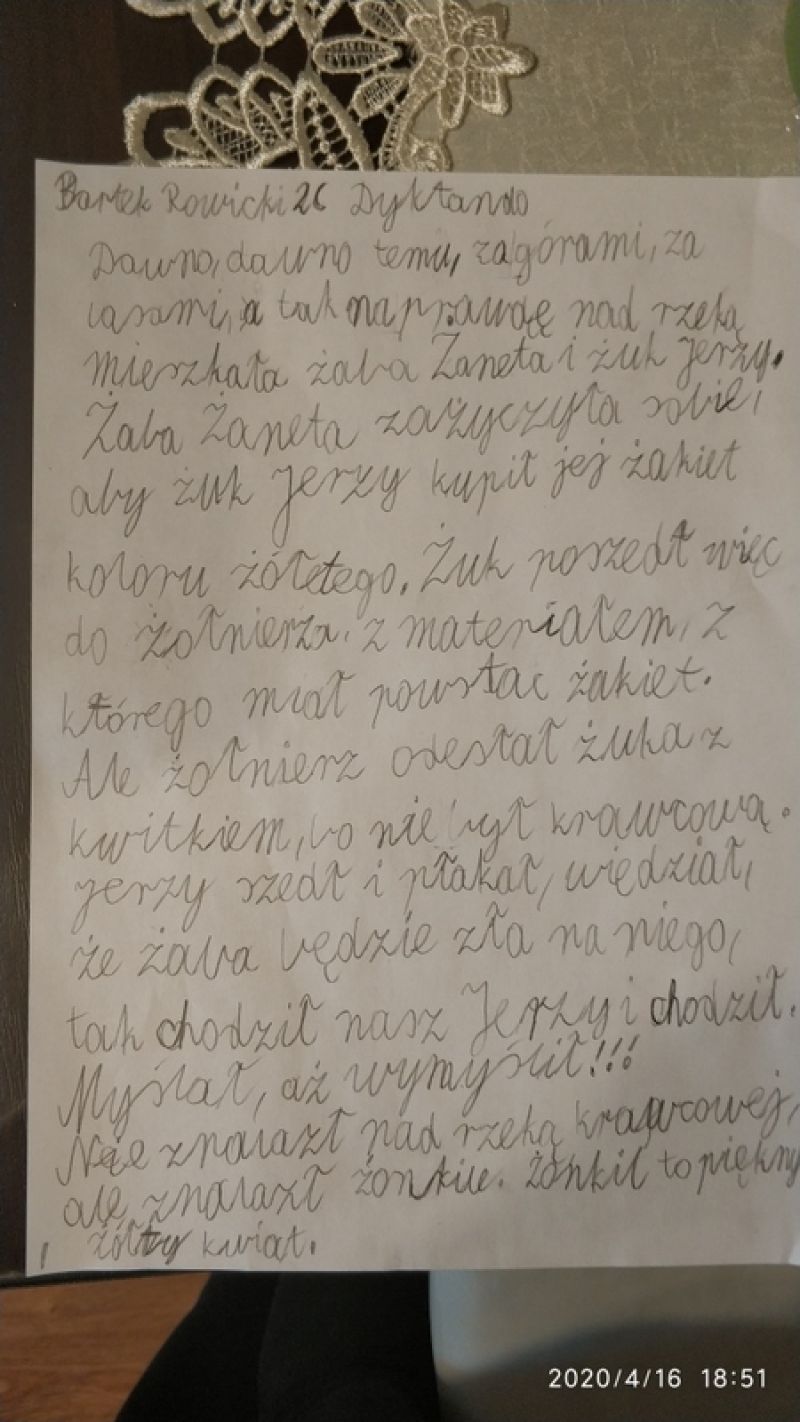 Bartek Rowicki 2c Dyktando
Dawno, dawno temu, za górami, za
lasami, a tak naprawdę nad rzeką
mieszkała żaba Żaneta i żuk Jerzy.
Żaba Żaneta zażyczyła sobie,
aby żuk Jerzy kupił jej żakiet
koloru żółtetego. Żuk poszedł więc
do żołnierza. z materiałem, z
którego miał powstac żakiet.
Ale żołnierz odesłał żuka z
kwitkiem, bo nie był krawcową.
Jerzy szedł i płakał, więdział,
że żaba będzie zła na niego,
tak chodził nasz Jerzy i chodził.
Myślał, aż wymyślił!!!
Nie znalazł nad rzeką krawcowej,
ale znalazł żonkile. Żonkil to piękny
żółty kwiat.
2020/4/16 18:51